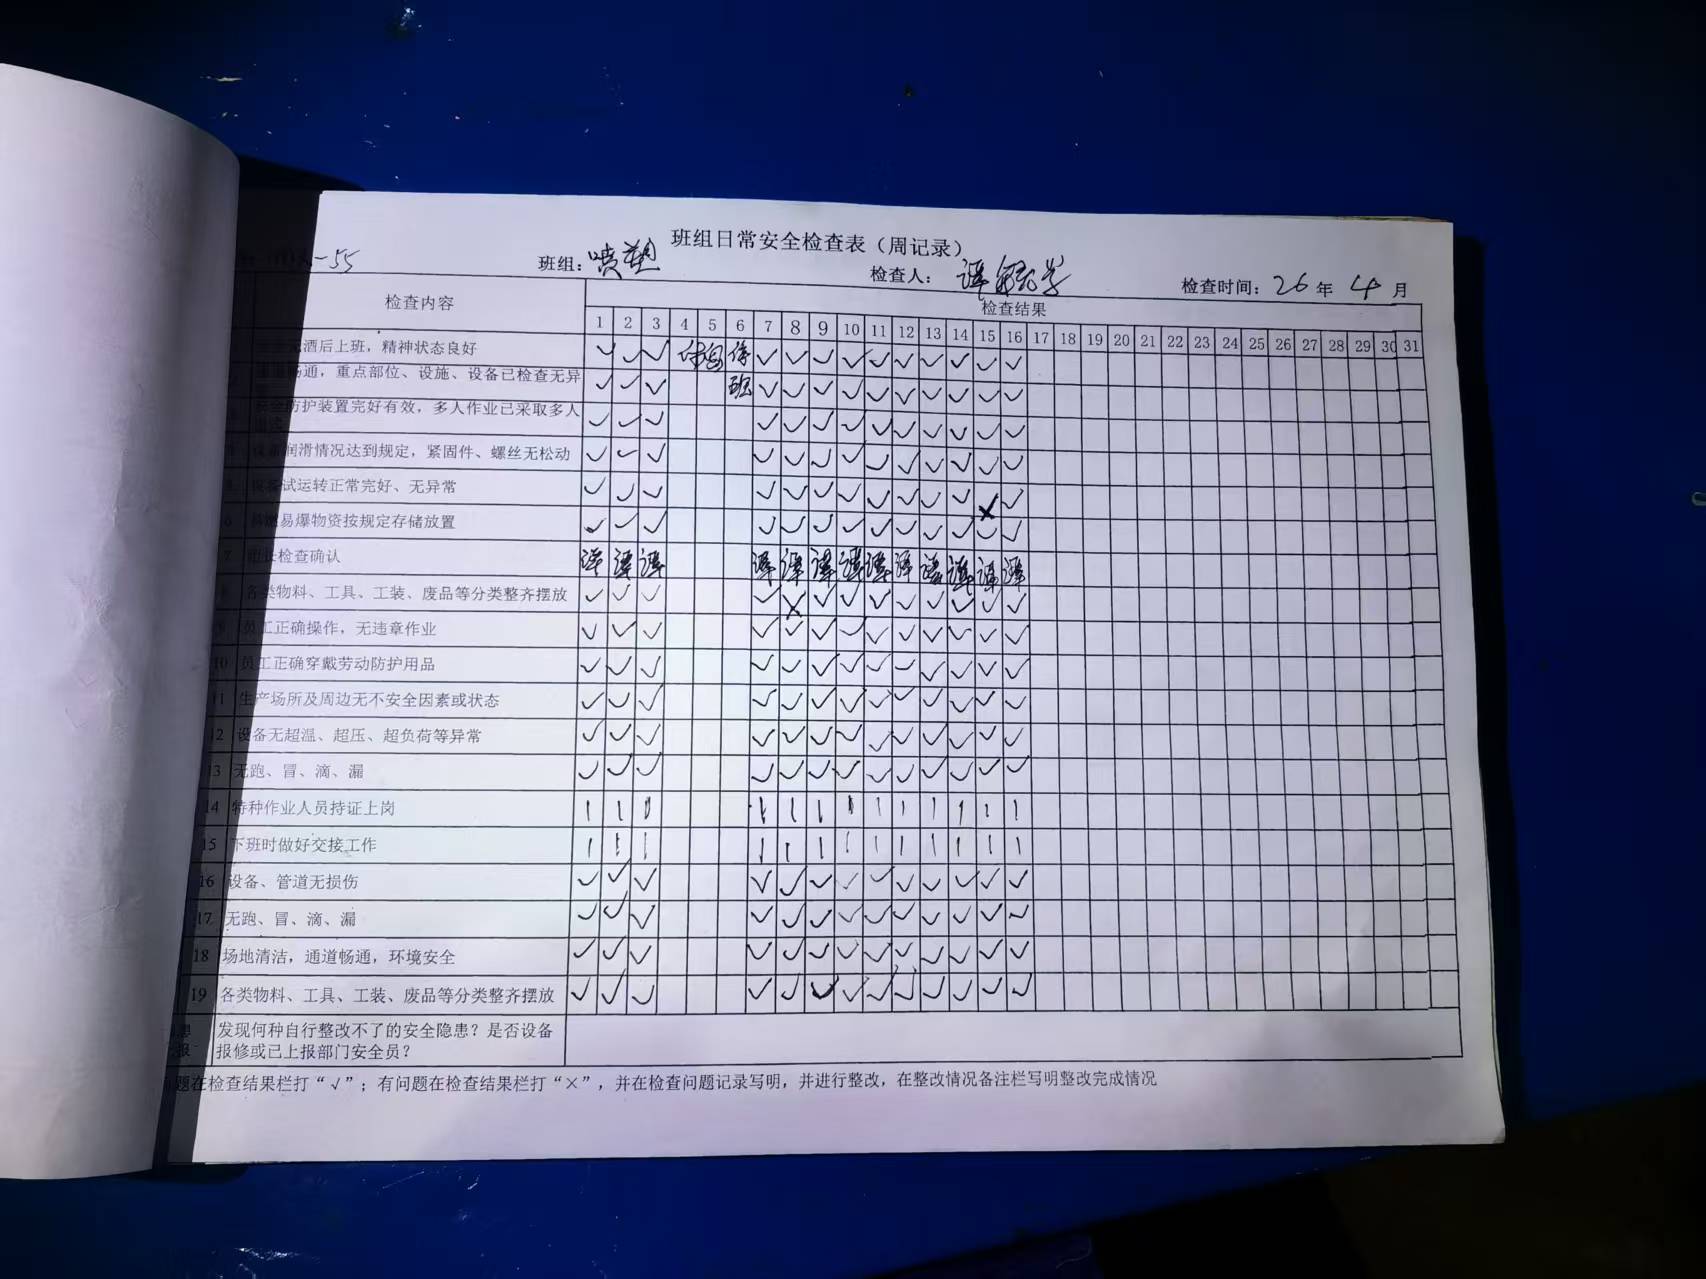 -55
班组日常安全检查表（周记录）
班组：喷塑 检查人： 检查时间：26年4月
检查内容 检查结果
1 2 3 4 5 6 7 8 9 10 11 12 13 14 15 16 17 18 19 20 21 22 23 24 25 26 27 28 29 30 31
酒后上班，精神状态良好 ✓ ✓ ✓ 休息 停 ✓ ✓ ✓ ✓ ✓ ✓ ✓ ✓ ✓ ✓
畅通，重点部位、设施、设备已检查无异 ✓ ✓ ✓ 班 ✓ ✓ ✓ ✓ ✓ ✓ ✓ ✓ ✓ ✓
安全防护装置完好有效，多人作业已采取多人 ✓ ✓ ✓ ✓ ✓ ✓ ✓ ✓ ✓ ✓ ✓ ✓ ✓
设备润滑情况达到规定，紧固件、螺丝无松动 ✓ ✓ ✓ ✓ ✓ ✓ ✓ ✓ ✓ ✓ ✓ ✓ ✓
设备试运转正常完好、无异常 ✓ ✓ ✓ ✓ ✓ ✓ ✓ ✓ ✓ ✓ ✓ × ✓
6 易燃易爆物资按规定存储放置 ✓ ✓ ✓ ✓ ✓ ✓ ✓ ✓ ✓ ✓ ✓ ✓ ✓
7 组长检查确认 谭 谭 谭 谭 谭 谭 谭 谭 谭 谭 谭 谭 谭
8 各类物料、工具、工装、废品等分类整齐摆放 ✓ ✓ ✓ ✓ × ✓ ✓ ✓ ✓ ✓ ✓ ✓ ✓
9 员工正确操作，无违章作业 ✓ ✓ ✓ ✓ ✓ ✓ ✓ ✓ ✓ ✓ ✓ ✓ ✓
10 员工正确穿戴劳动防护用品 ✓ ✓ ✓ ✓ ✓ ✓ ✓ ✓ ✓ ✓ ✓ ✓ ✓
11 生产场所及周边无不安全因素或状态 ✓ ✓ ✓ ✓ ✓ ✓ ✓ ✓ ✓ ✓ ✓ ✓ ✓
12 设备无超温、超压、超负荷等异常 ✓ ✓ ✓ ✓ ✓ ✓ ✓ ✓ ✓ ✓ ✓ ✓ ✓
13 无跑、冒、滴、漏 ✓ ✓ ✓ ✓ ✓ ✓ ✓ ✓ ✓ ✓ ✓ ✓ ✓
14 特种作业人员持证上岗 | | | | | | | | | | | | |
15 下班时做好交接工作 | | | | | | | | | | | | |
16 设备、管道无损伤 ✓ ✓ ✓ ✓ ✓ ✓ ✓ ✓ ✓ ✓ ✓ ✓ ✓
17 无跑、冒、滴、漏 ✓ ✓ ✓ ✓ ✓ ✓ ✓ ✓ ✓ ✓ ✓ ✓ ✓
18 场地清洁，通道畅通，环境安全 ✓ ✓ ✓ ✓ ✓ ✓ ✓ ✓ ✓ ✓ ✓ ✓ ✓
19 各类物料、工具、工装、废品等分类整齐摆放 ✓ ✓ ✓ ✓ ✓ ✓ ✓ ✓ ✓ ✓ ✓ ✓ ✓
发现何种自行整改不了的安全隐患？是否设备
报 报修或已上报部门安全员？
题在检查结果栏打“√”；有问题在检查结果栏打“×”，并在检查问题记录写明，并进行整改，在整改情况备注栏写明整改完成情况